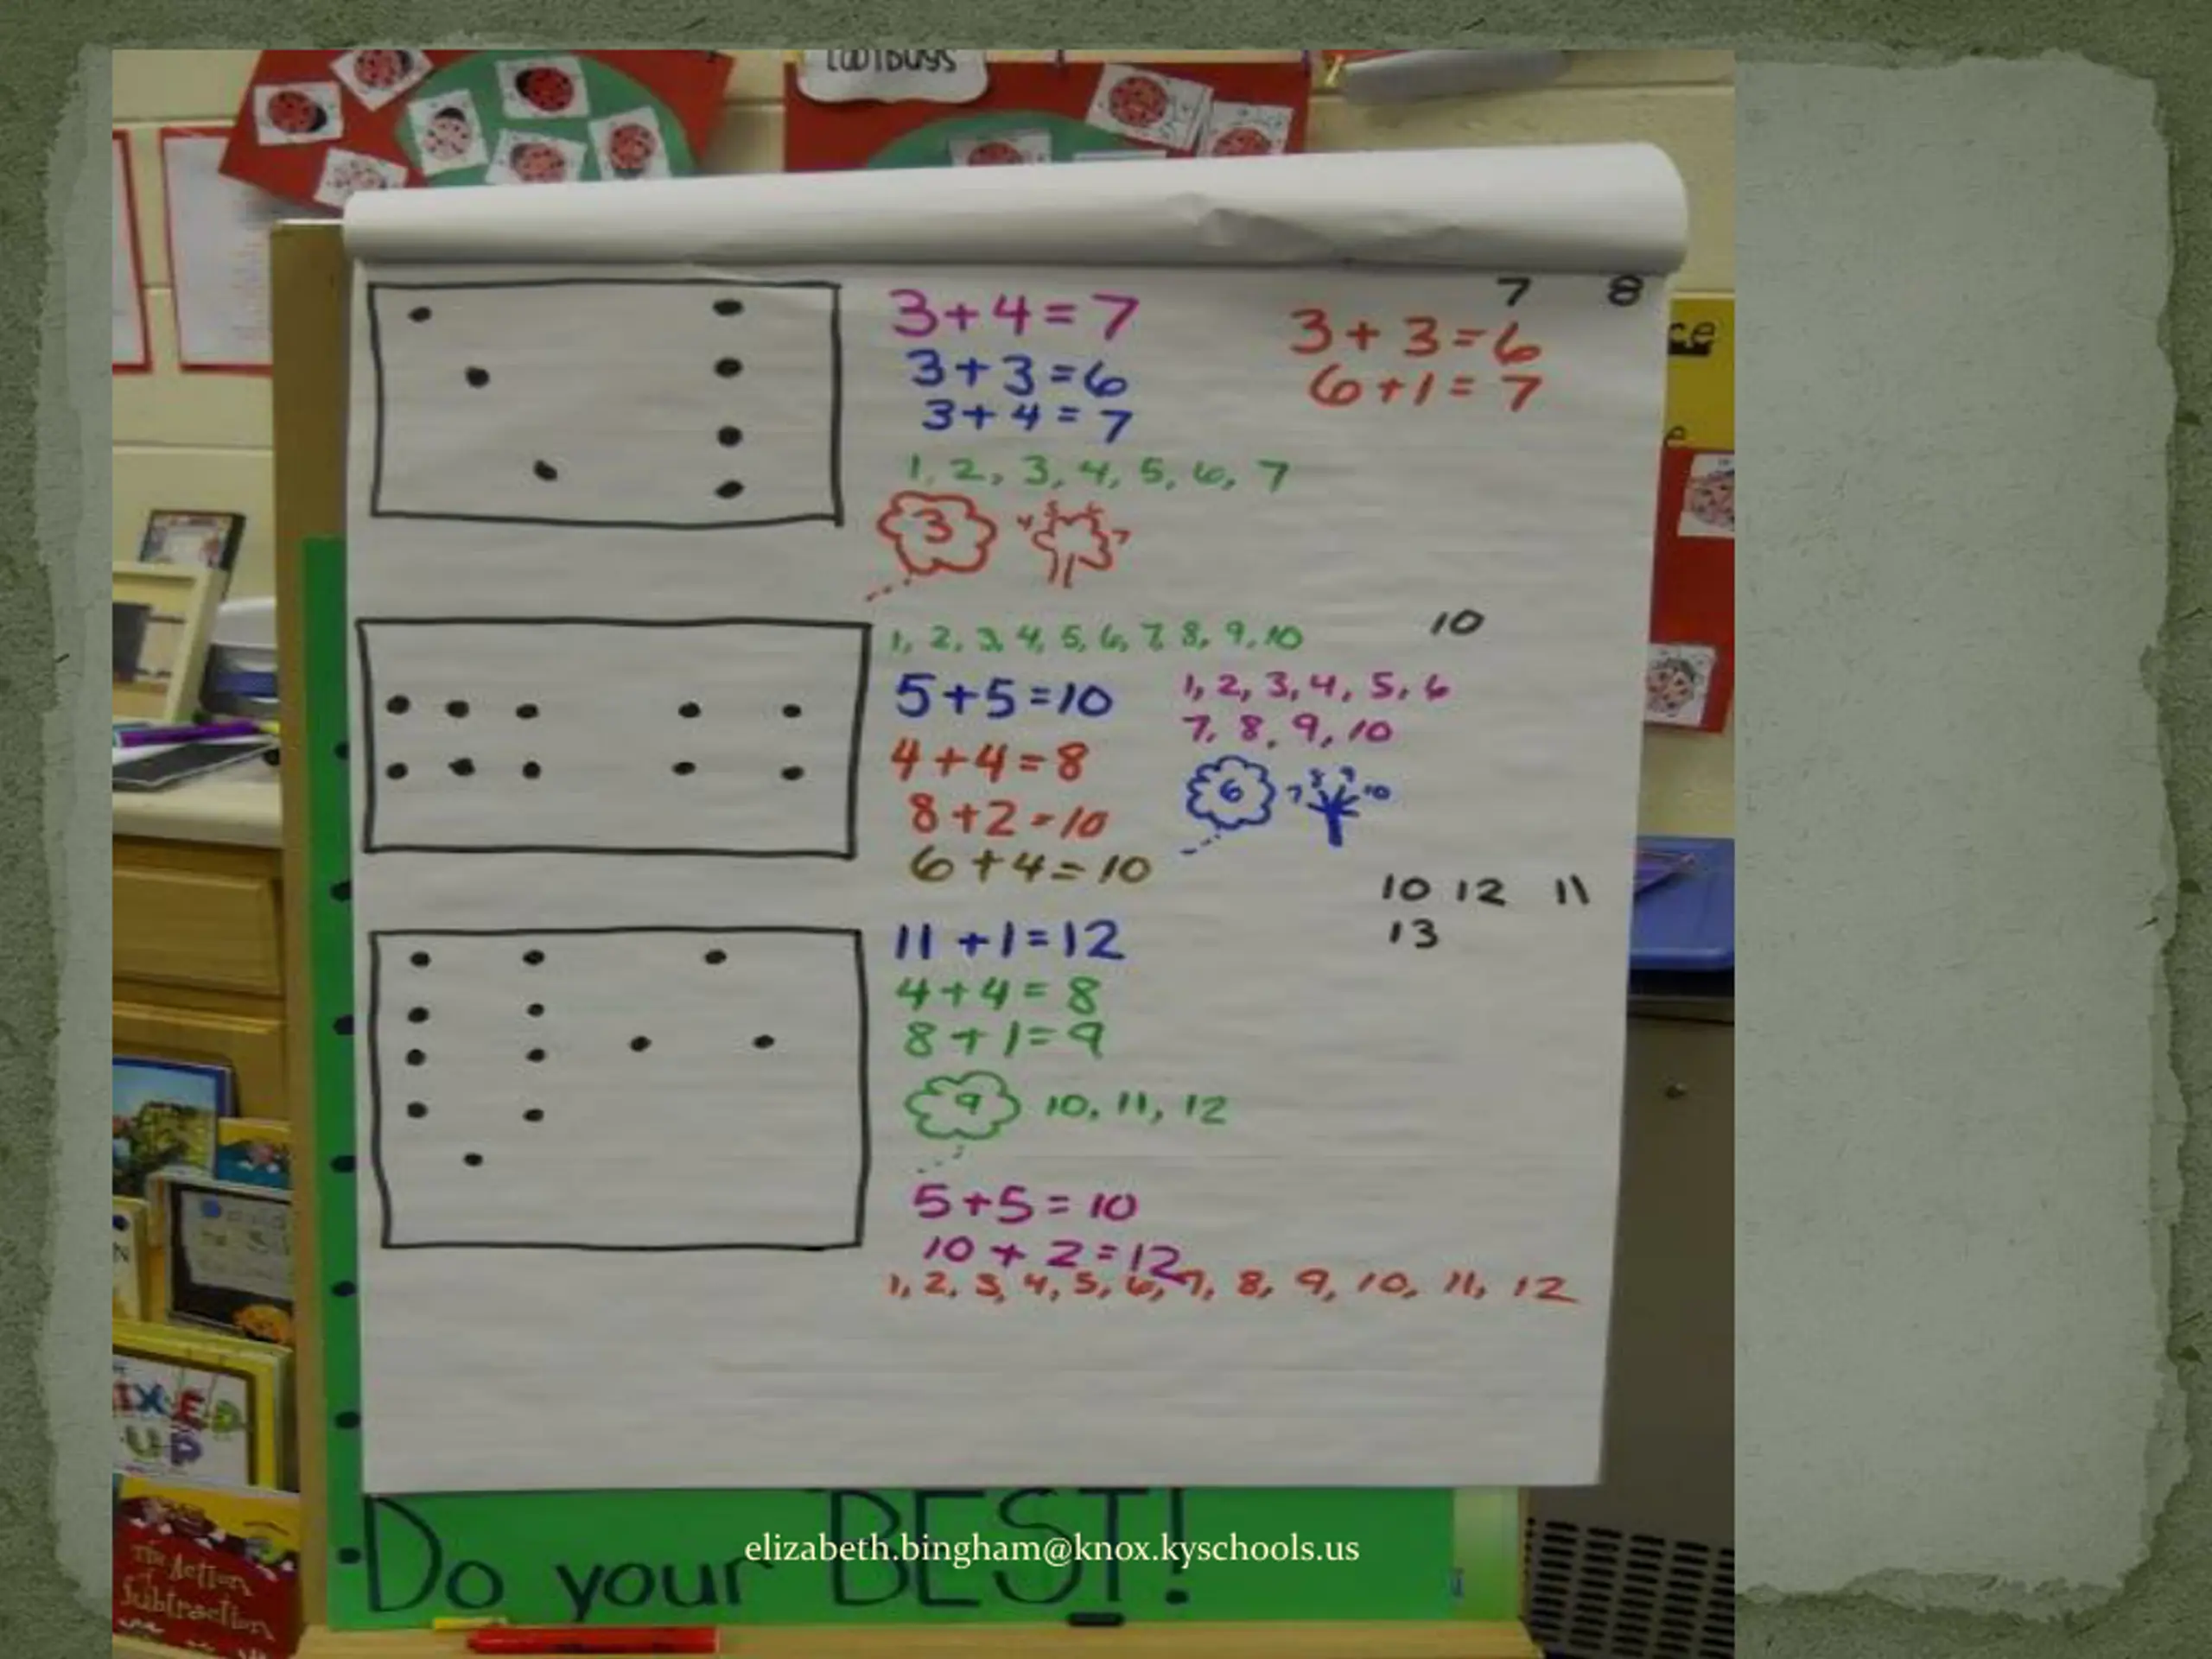 3+4=7
3+3=6
3+4=7
1, 2, 3, 4, 5, 6, 7
3
7 8
3+3=6
6+1=7
1, 2, 3, 4, 5, 6, 7, 8, 9, 10
10
5+5=10
4+4=8
8+2=10
6+4=10
1, 2, 3, 4, 5, 6
7, 8, 9, 10
6 7 8 9 10
10 12 11
13
11+1=12
4+4=8
8+1=9
9 10, 11, 12
5+5=10
10+2=12
1, 2, 3, 4, 5, 6, 7, 8, 9, 10, 11, 12
MIXED
UP
The Action
of
Subtraction
Do your BEST!
elizabeth.bingham@knox.kyschools.us